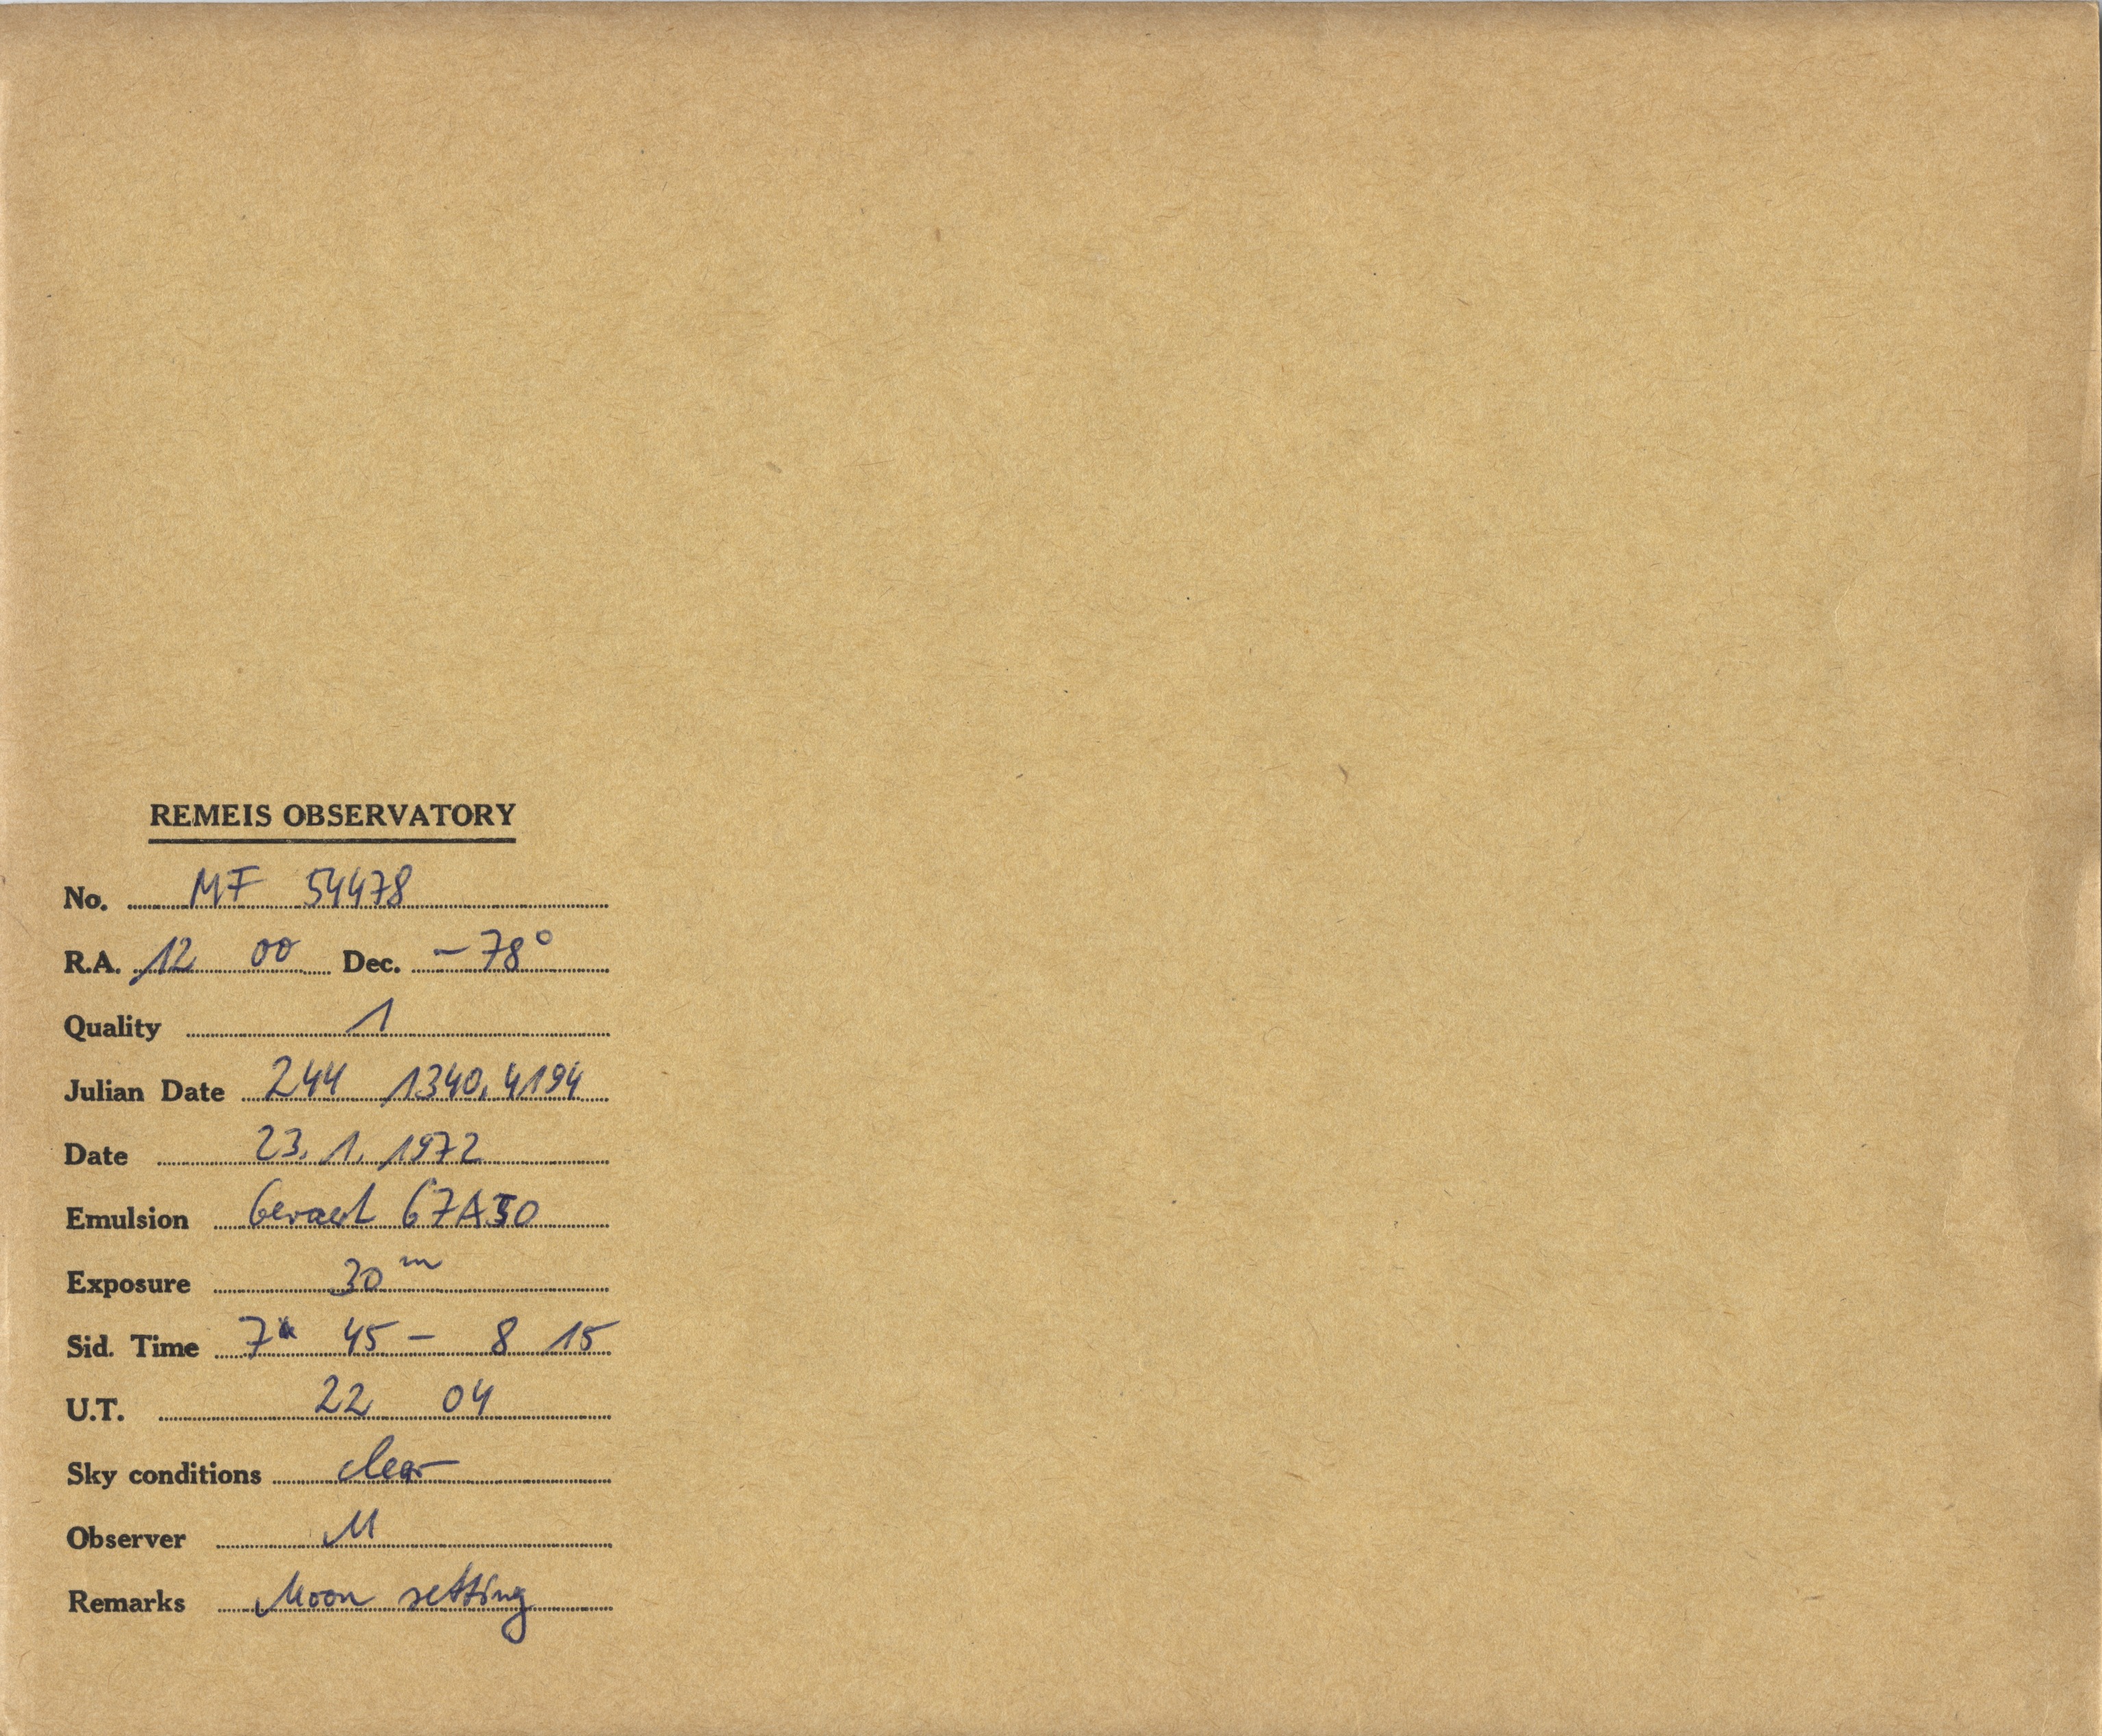 REMEIS OBSERVATORY
No. MF 54478
R.A. 12 00 Dec. -78°
Quality 1
Julian Date 244 1340,4194
Date 23.1.1972
Emulsion Gevaert 67A50
Exposure 30 m
Sid. Time 7h 45 - 8 15
U.T. 22 04
Sky conditions clear
Observer M
Remarks Moon setting